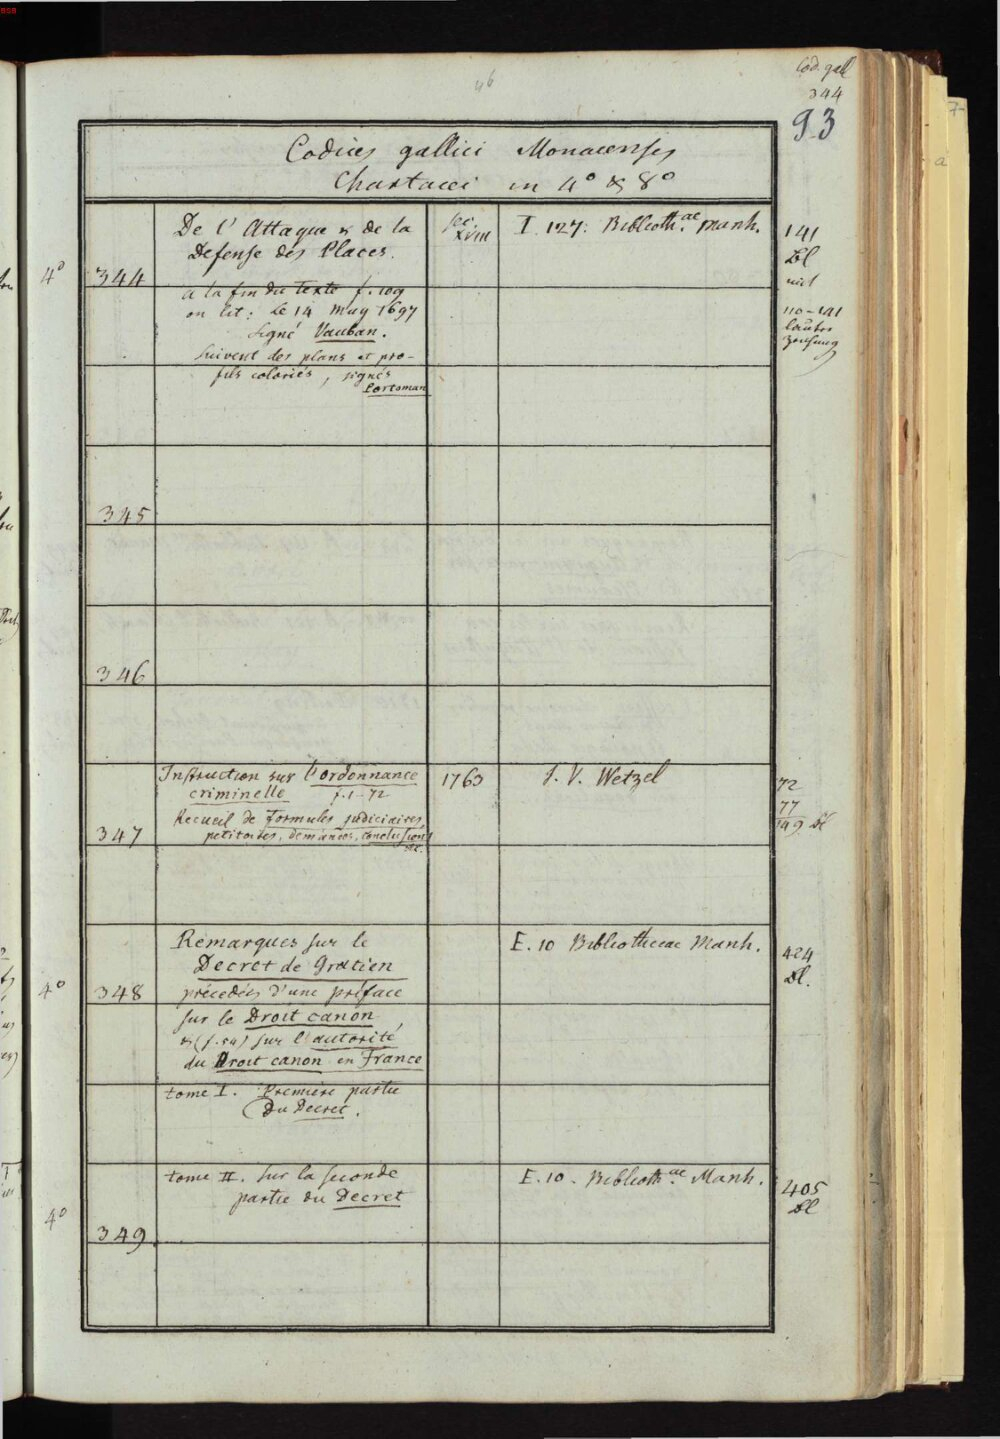 46
Cod. gall
344
93
Codices gallici Monacenses
Chartacei in 4° & 8°
4°
344
De l'Attaque & de la
Defense des Places.
a la fin du texte f. 109
on lit: Le 14 may 1697
signé Vauban.
suivent des plans et pro-
fils coloriés, signés
Portoman
sec
XVIII
I. 127. Biblioth.ae Manh.
141
Bl
mit
110-141
345
346
347
Instruction sur l'ordonnance
criminelle f. 1-72
Recueil de formules judiciaires,
petitoires, demandes, conclusions
etc.
1763
J. V. Wetzel
72
77
149 Bl
4°
348
Remarques sur le
Decret de Gratien
précedées d'une préface
sur le Droit canon
& (f. 54) sur l'autorité
du Droit canon en France
tome I. Premiere partie
du Decret.
E. 10 Bibliothecae Manh.
424
Bl.
4°
349
tome II. sur la seconde
partie du Decret
E. 10. Biblioth.ae Manh.
405
Bl